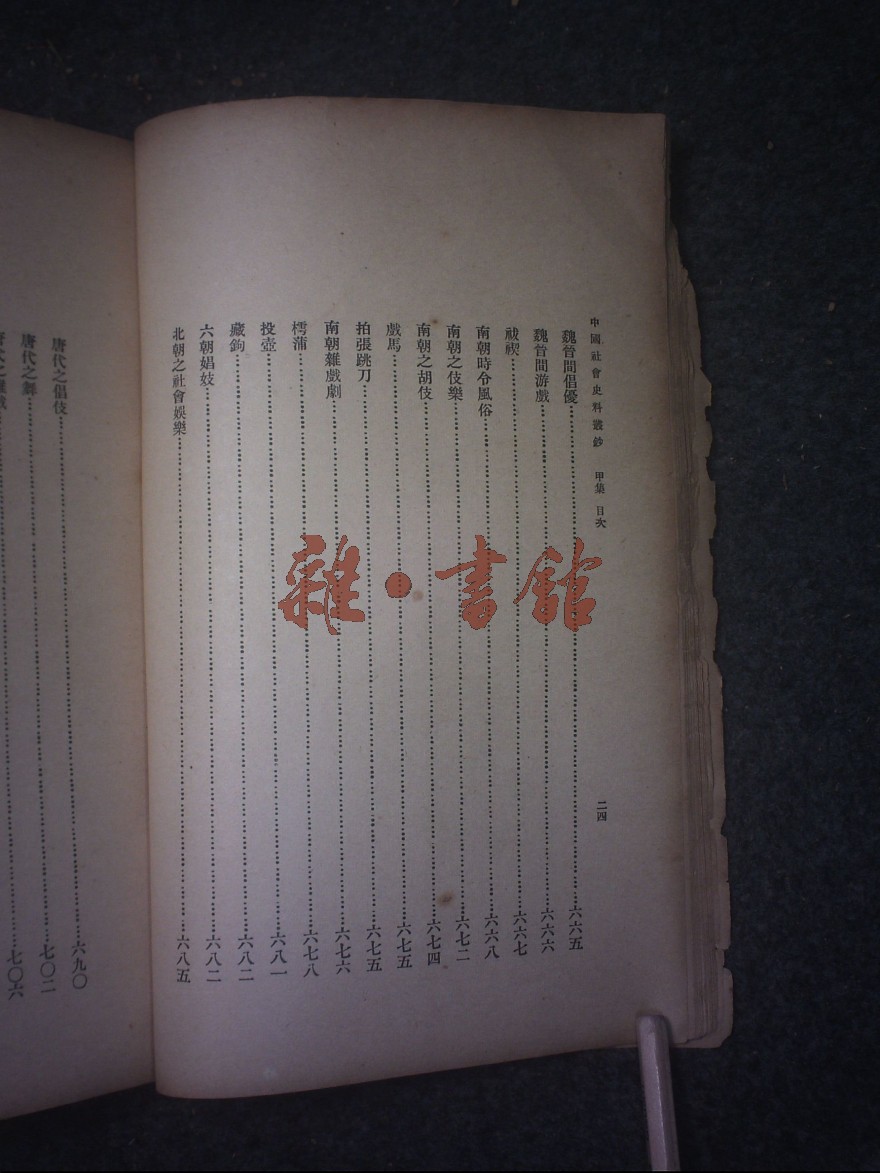 中國社會史料叢鈔 甲集 目次 二四
魏晉間倡優……六六五
魏晉間游戲……六六六
祓禊……六六七
南朝時令風俗……六六八
南朝之伎樂……六七二
南朝之胡伎……六七四
戲馬……六七五
拍張跳刀……六七五
南朝雜戲劇……六七六
樗蒲……六七八
投壺……六八一
藏鉤……六八二
六朝娼妓……六八二
北朝之社會娛樂……六八五
唐代之倡伎……六九〇
唐代之舞……七〇二
七〇六
雜·書館